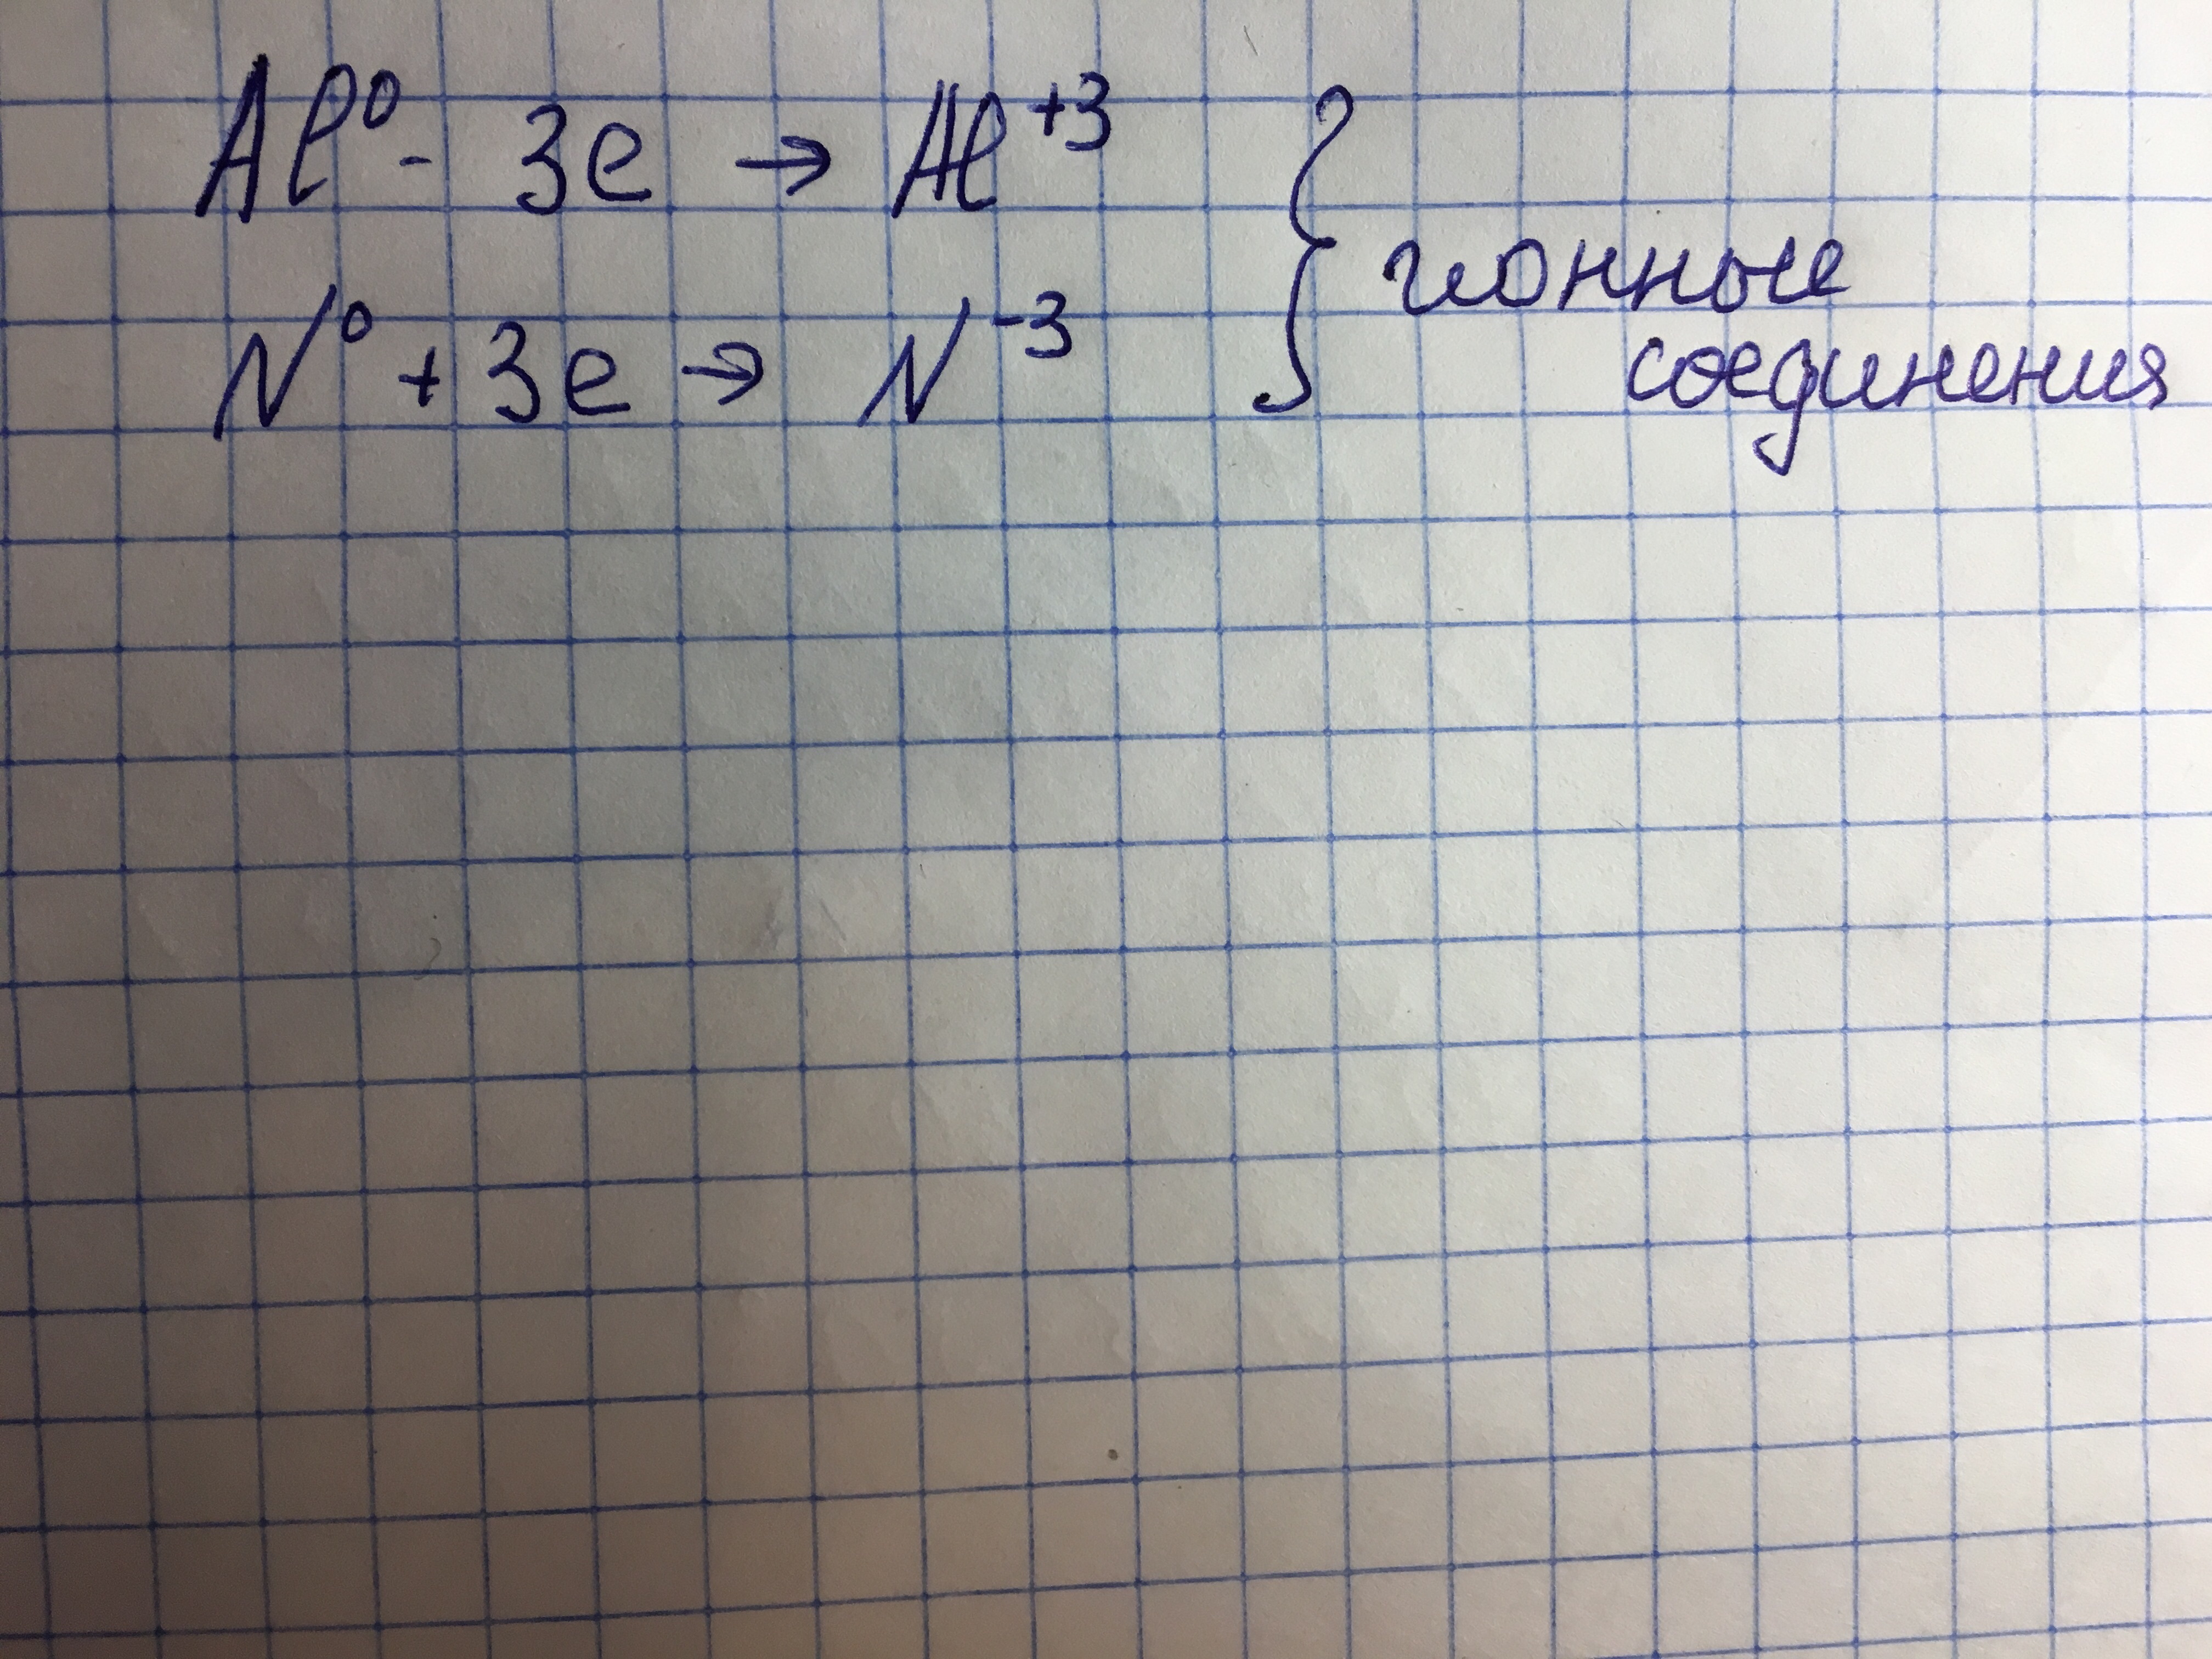 Al⁰ - 3e → Al⁺³
N⁰ + 3e → N⁻³
ионные
соединения